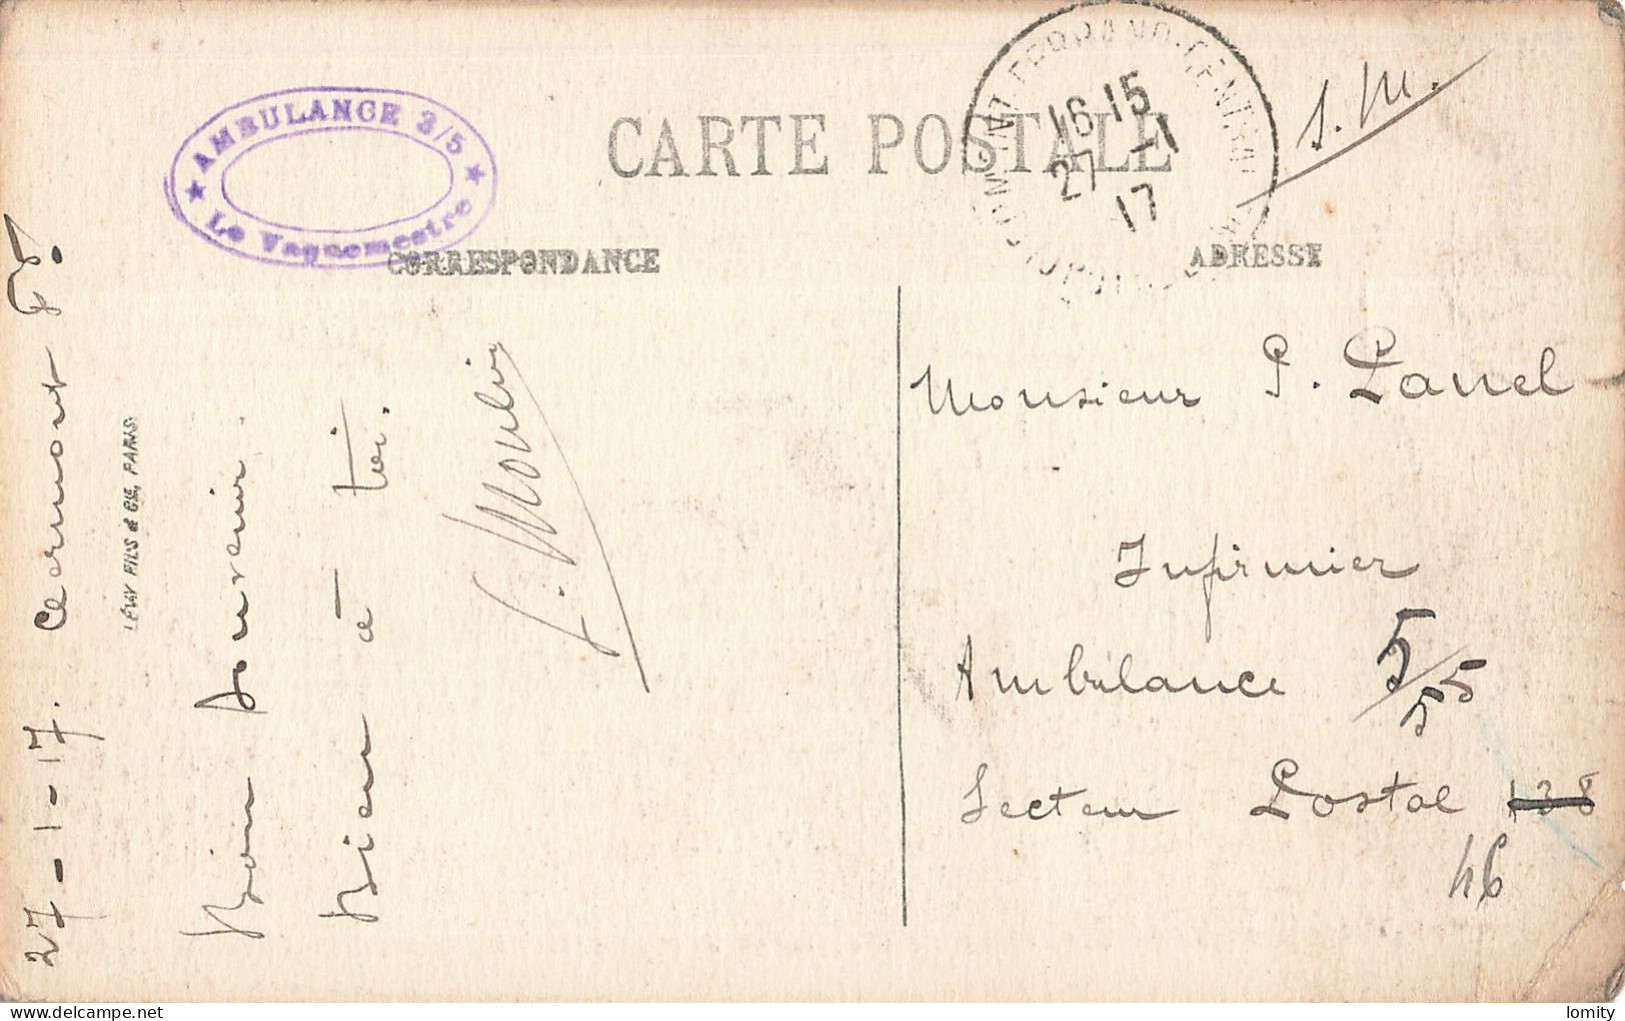 CARTE POSTALE
AMBULANCE 3/5
Le Vaguemestre
CORRESPONDANCE
ADRESSE
CLERMONT-FERRAND-CENTRAL
16 15
27 -1
17
S.M.
27-1-17. Clermont Fd.
LÉVY FILS & CIE, PARIS
Bon souvenir.
Bien à toi.
Monsieur P. Lanel
Infirmier
Ambulance 5/55
Secteur Postal 138
46
lomity